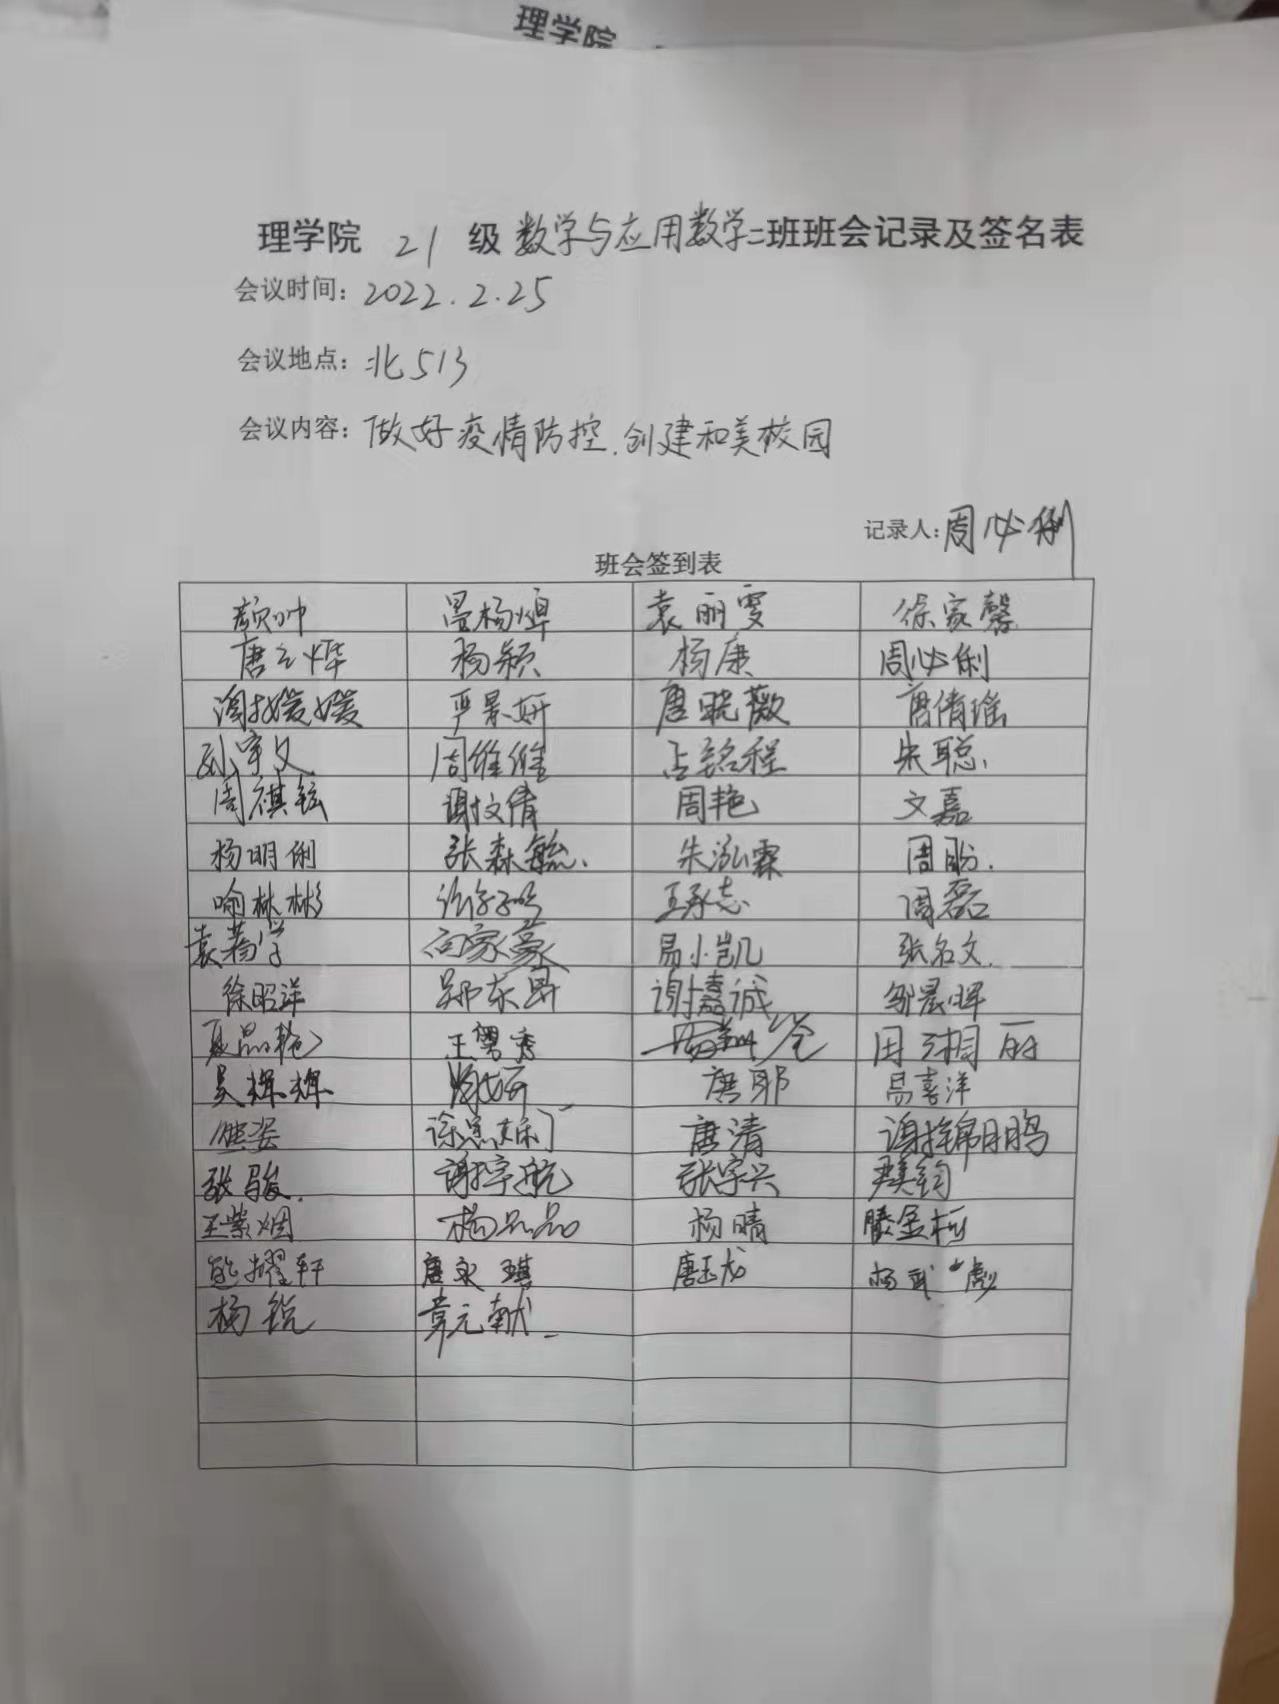 理学院
理学院 21 级 数学与应用数学二班班会记录及签名表
会议时间：2022.2.25
会议地点：北513
会议内容：做好疫情防控.创建和美校园
记录人：周必俐
班会签到表
颜帅 袁丽雯 徐家馨
杨颖 杨康 周必俐
谢媛媛 严景妍 唐晓薇 唐倩瑶
孙宇文 周维维 占铭程 朱聪
周祺铉 谢文倩 周艳 文嘉
杨明俐 张森毓 朱泓霖 周盼
喻彬彬 王承志 周磊
向家豪 易小凯 张名文
徐昭洋 郑东昇 谢嘉诚 邹晨晖
夏品艳
吴辉辉 唐耶 易喜洋
熊姿 唐清 谢锦鹏
张骏 谢宇航 张宇兴 尹美钧
王紫烟 杨品品 杨晴 滕金梅
熊耀轩 唐永琪 唐玉龙
杨锐 章元献